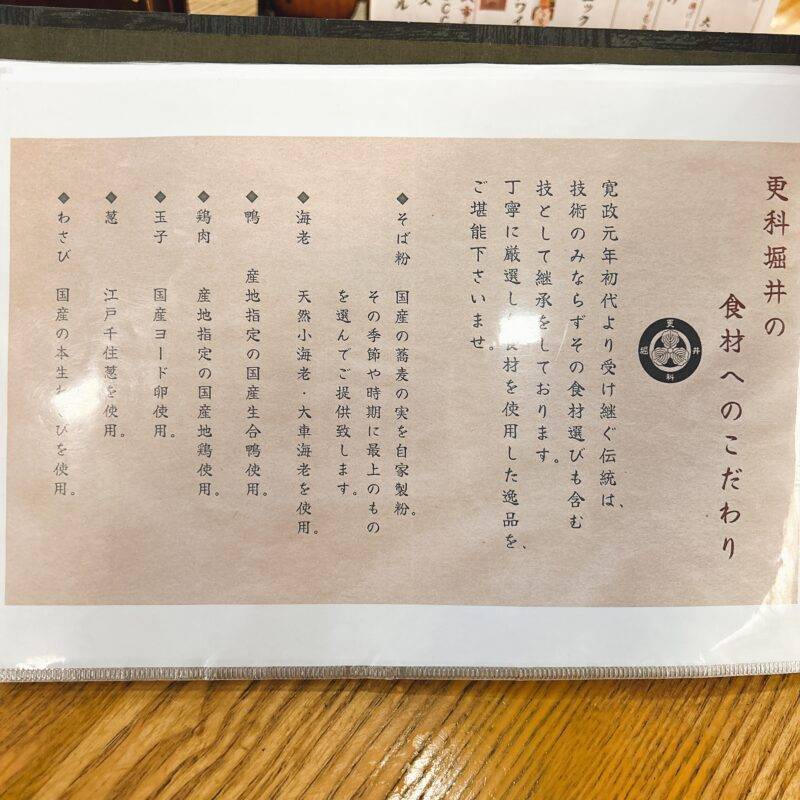 更科堀井の
食材へのこだわり
更
堀 井
科
寛政元年初代より受け継ぐ伝統は、
技術のみならずその食材選びも含む
技として継承をしております。
丁寧に厳選し 食材を使用した逸品を、
ご堪能下さいませ。
◆そば粉 国産の蕎麦の実を自家製粉。
その季節や時期に最上のもの
を選んでご提供致します。
◆海老 天然小海老・大車海老を使用。
◆鴨 産地指定の国産生合鴨使用。
◆鶏肉 産地指定の国産地鶏使用。
◆玉子 国産ヨード卵使用。
◆葱 江戸千住葱を使用。
◆わさび 国産の本生わさびを使用。